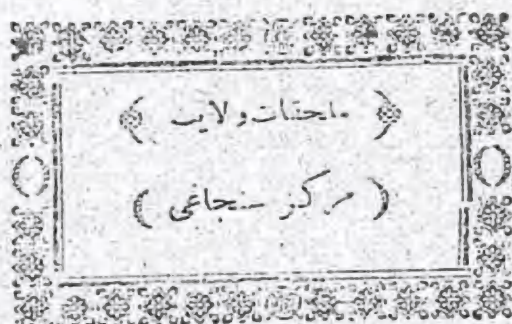 ﴿ ملحقات ولايت ﴾
( مركز سنجاغى )